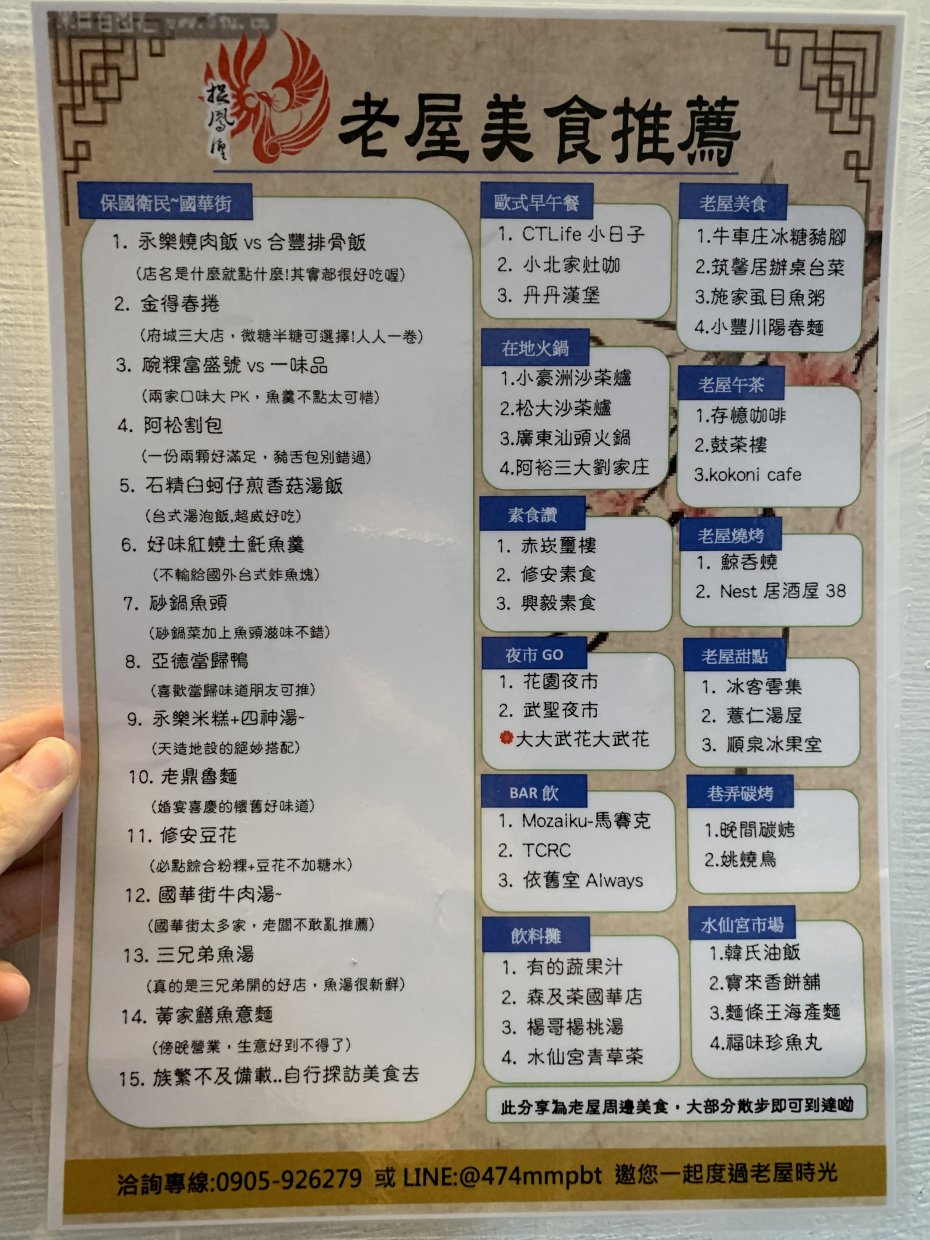 捉鳳凰
老屋美食推薦
保國衛民~國華街
1. 永樂燒肉飯 vs 合豐排骨飯
(店名是什麼就點什麼!其實都很好吃喔)
2. 金得春捲
(府城三大店，微糖半糖可選擇!人人一卷)
3. 碗粿富盛號 vs 一味品
(兩家口味大 PK，魚羹不點太可惜)
4. 阿松割包
(一份兩顆好滿足，豬舌包別錯過)
5. 石精臼蚵仔煎香菇湯飯
(台式湯泡飯,超威好吃)
6. 好味紅燒土魠魚羹
(不輸給國外台式炸魚塊)
7. 砂鍋魚頭
(砂鍋菜加上魚頭滋味不錯)
8. 亞德當歸鴨
(喜歡當歸味道朋友可推)
9. 永樂米糕+四神湯~
(天造地設的絕妙搭配)
10. 老鼎魯麵
(婚宴喜慶的懷舊好味道)
11. 修安豆花
(必點綜合粉粿+豆花不加糖水)
12. 國華街牛肉湯~
(國華街太多家，老闆不敢亂推薦)
13. 三兄弟魚湯
(真的是三兄弟開的好店，魚湯很新鮮)
14. 黃家鱔魚意麵
(傍晚營業，生意好到不得了)
15. 族繁不及備載..自行探訪美食去
歐式早午餐
1. CTLife 小日子
2. 小北家灶咖
3. 丹丹漢堡
在地火鍋
1.小豪洲沙茶爐
2.松大沙茶爐
3.廣東汕頭火鍋
4.阿裕三大劉家庄
素食讚
1. 赤崁璽樓
2. 修安素食
3. 興毅素食
夜市 GO
1. 花園夜市
2. 武聖夜市
大大武花大武花
BAR 飲
1. Mozaiku-馬賽克
2. TCRC
3. 依舊堂 Always
飲料攤
1. 有的蔬果汁
2. 森及茶國華店
3. 楊哥楊桃湯
4. 水仙宮青草茶
老屋美食
1.牛車庄冰糖豬腳
2.筑馨居辦桌台菜
3.施家虱目魚粥
4.小豐川陽春麵
老屋午茶
1.存憶咖啡
2.鼓茶樓
3.kokoni cafe
老屋燒烤
1. 鯨吞燒
2. Nest 居酒屋 38
老屋甜點
1. 冰客雲集
2. 薏仁湯屋
3. 順泉冰果室
巷弄碳烤
1.晚間碳烤
2.姚燒鳥
水仙宮市場
1.韓氏油飯
2.寶來香餅舖
3.麵條王海產麵
4.福味珍魚丸
此分享為老屋周邊美食，大部分散步即可到達呦
洽詢專線:0905-926279 或 LINE:@474mmpbt 邀您一起度過老屋時光